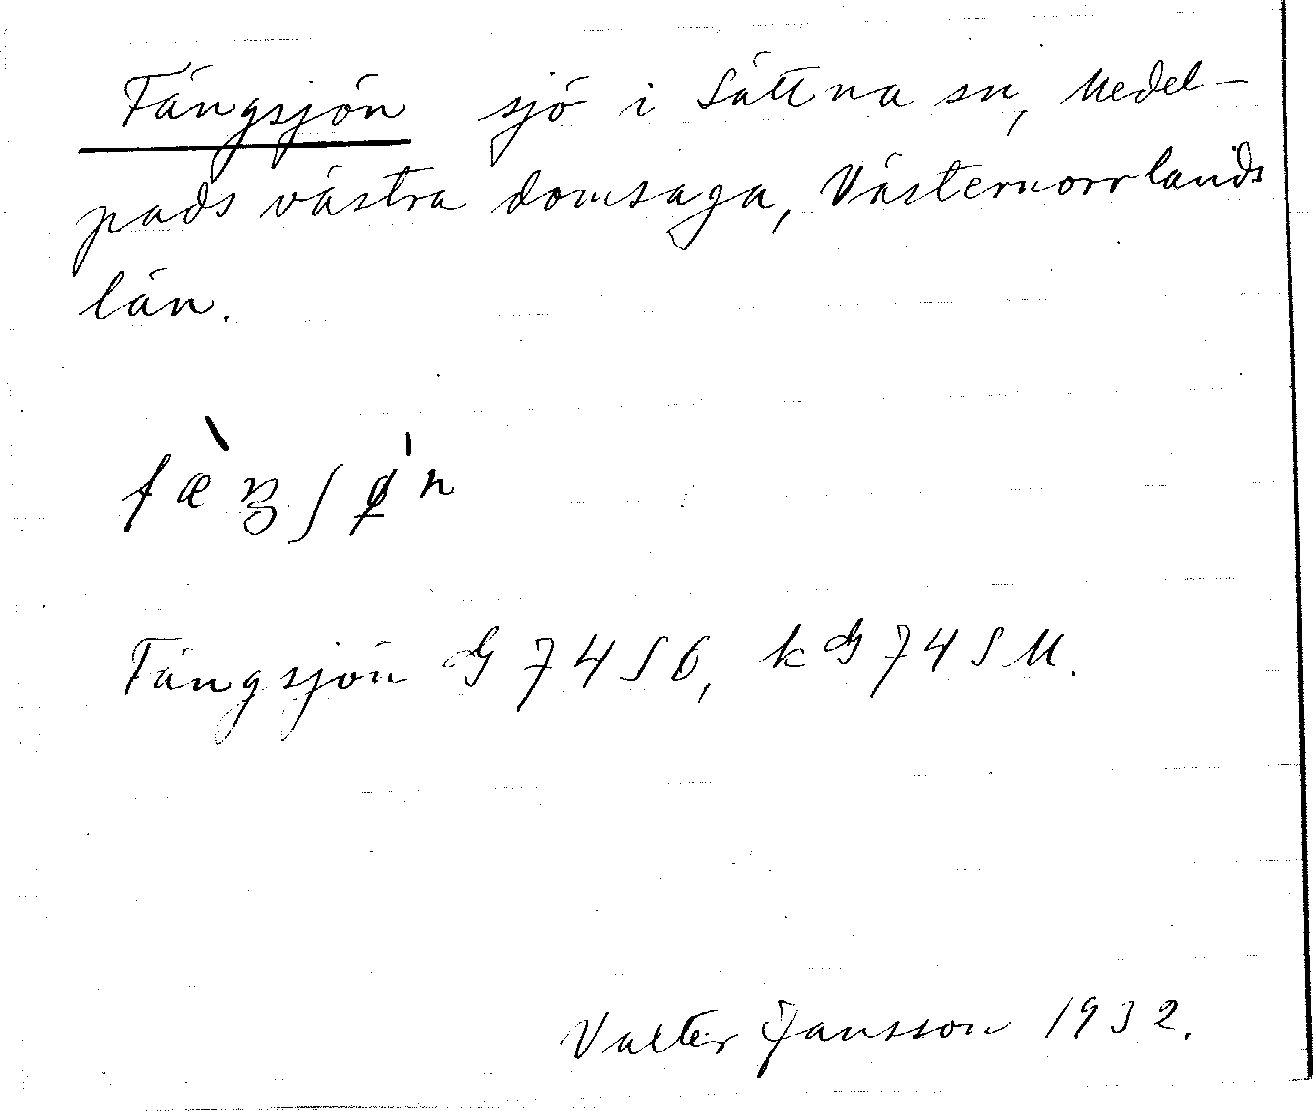 Fängsjön sjö i Sättna sn, Medel-
pads västra domsaga, Västernorrlands
län.
Fängsjön G 74 SO, k G 74 S M.
Valter Jansson 1932.